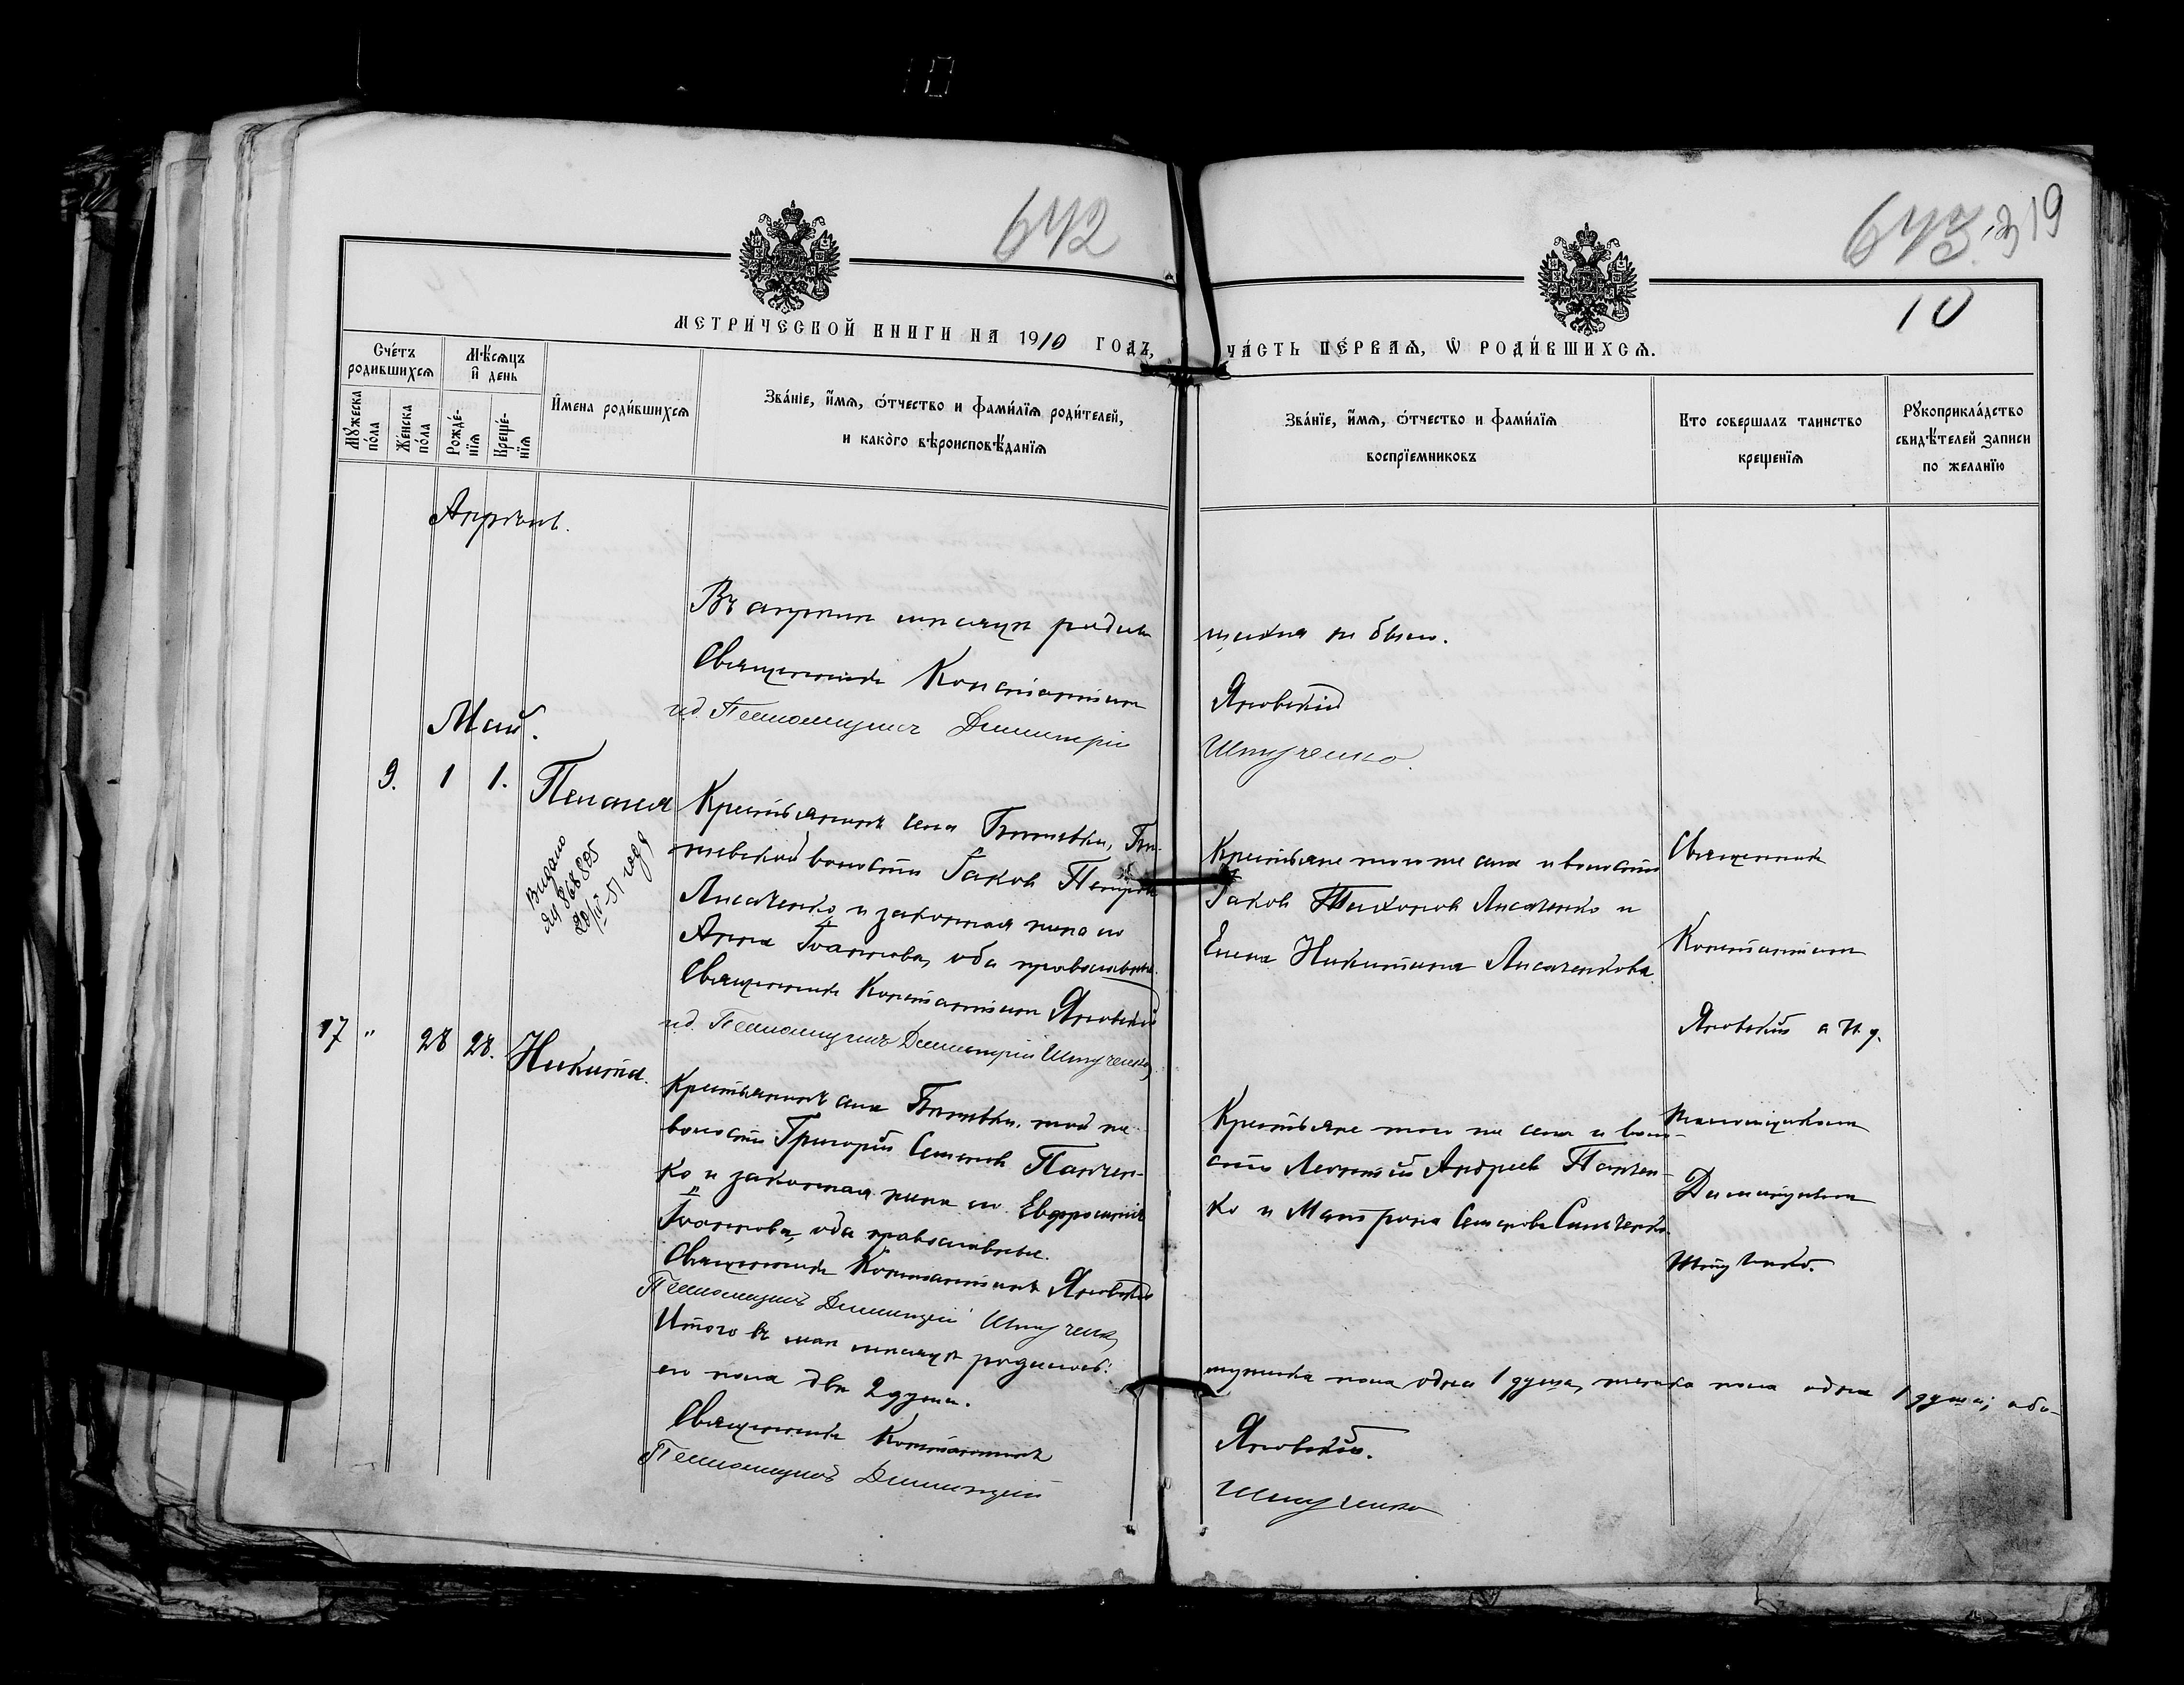 10
642
643.
319
10
МЕТРИ́ЧЕСКОЙ КНИГИ НА 1910 ГОДЪ,
ЧА́СТЬ ПЕ́РВАѦ, Ѡ РОДИ́ВШИХСѦ.
Сче́тъ родившихсѧ
Мѣ́сѧцъ и҆ день
Мꙋ́жеска по́ла
Же́нска по́ла
Рожде́-нїѧ
Креще́-нїѧ
И҆мена роди́вшихсѧ
Зва́нїе, и҆́мѧ, ѻ҆́тчество и фами́лїѧ роди́телей,
и како́го вѣроисповѣ́данїѧ
Зва́нїе, и҆́мѧ, ѻ҆́тчество и фами́лїѧ
воспрїемниковъ
Кто совершалъ таинство
крещенїѧ
Рꙋкоприкла́дство
свидѣ́телей записи
по желанїю
Апрѣль.
Въ апрѣлѣ мѣсяцѣ родив
шихся не было.
Священникъ Константинъ
Яновскій
ид. Псаломщика Димитрій
Шпученко.
Май.
9. 1 1. Пелагея
Видано
20/IV-51 года
Крестьянинъ села
волости Іаковъ Петровъ
Лисаченко и законная жена его
Анна Іоаннова, оба православные.
Священникъ Константинъ Яновскій
ид. Псаломщика Димитрій Шпученко
Крестьяне того же села и волости
Іаковъ Тихоновъ Лисаченко и
Елена Никитина Лисаченкова
Священникъ
Константинъ
Яновскій с и. д.
17 " 28 28. Никита.
Крестьянинъ села той же
волости Григорій Семеновъ Панчен-
ко и законная жена его Евфросинія
Іоаннова, оба православные.
Священникъ Константинъ Яновскій
Псаломщикъ Димитрій Шпученко
Крестьяне того же села и воло-
сти Леонтій Андреевъ Панчен-
ко и Матрона Семенова
псаломщикомъ
Димитріемъ
Итого въ маѣ мѣсяцѣ родилось:
мужеска пола одна 1 душа, женска пола одна 1 душа; обо-
его пола двѣ 2 души.
Священникъ Константинъ
Яновскій.
Псаломщикъ Димитрій
Шпученко